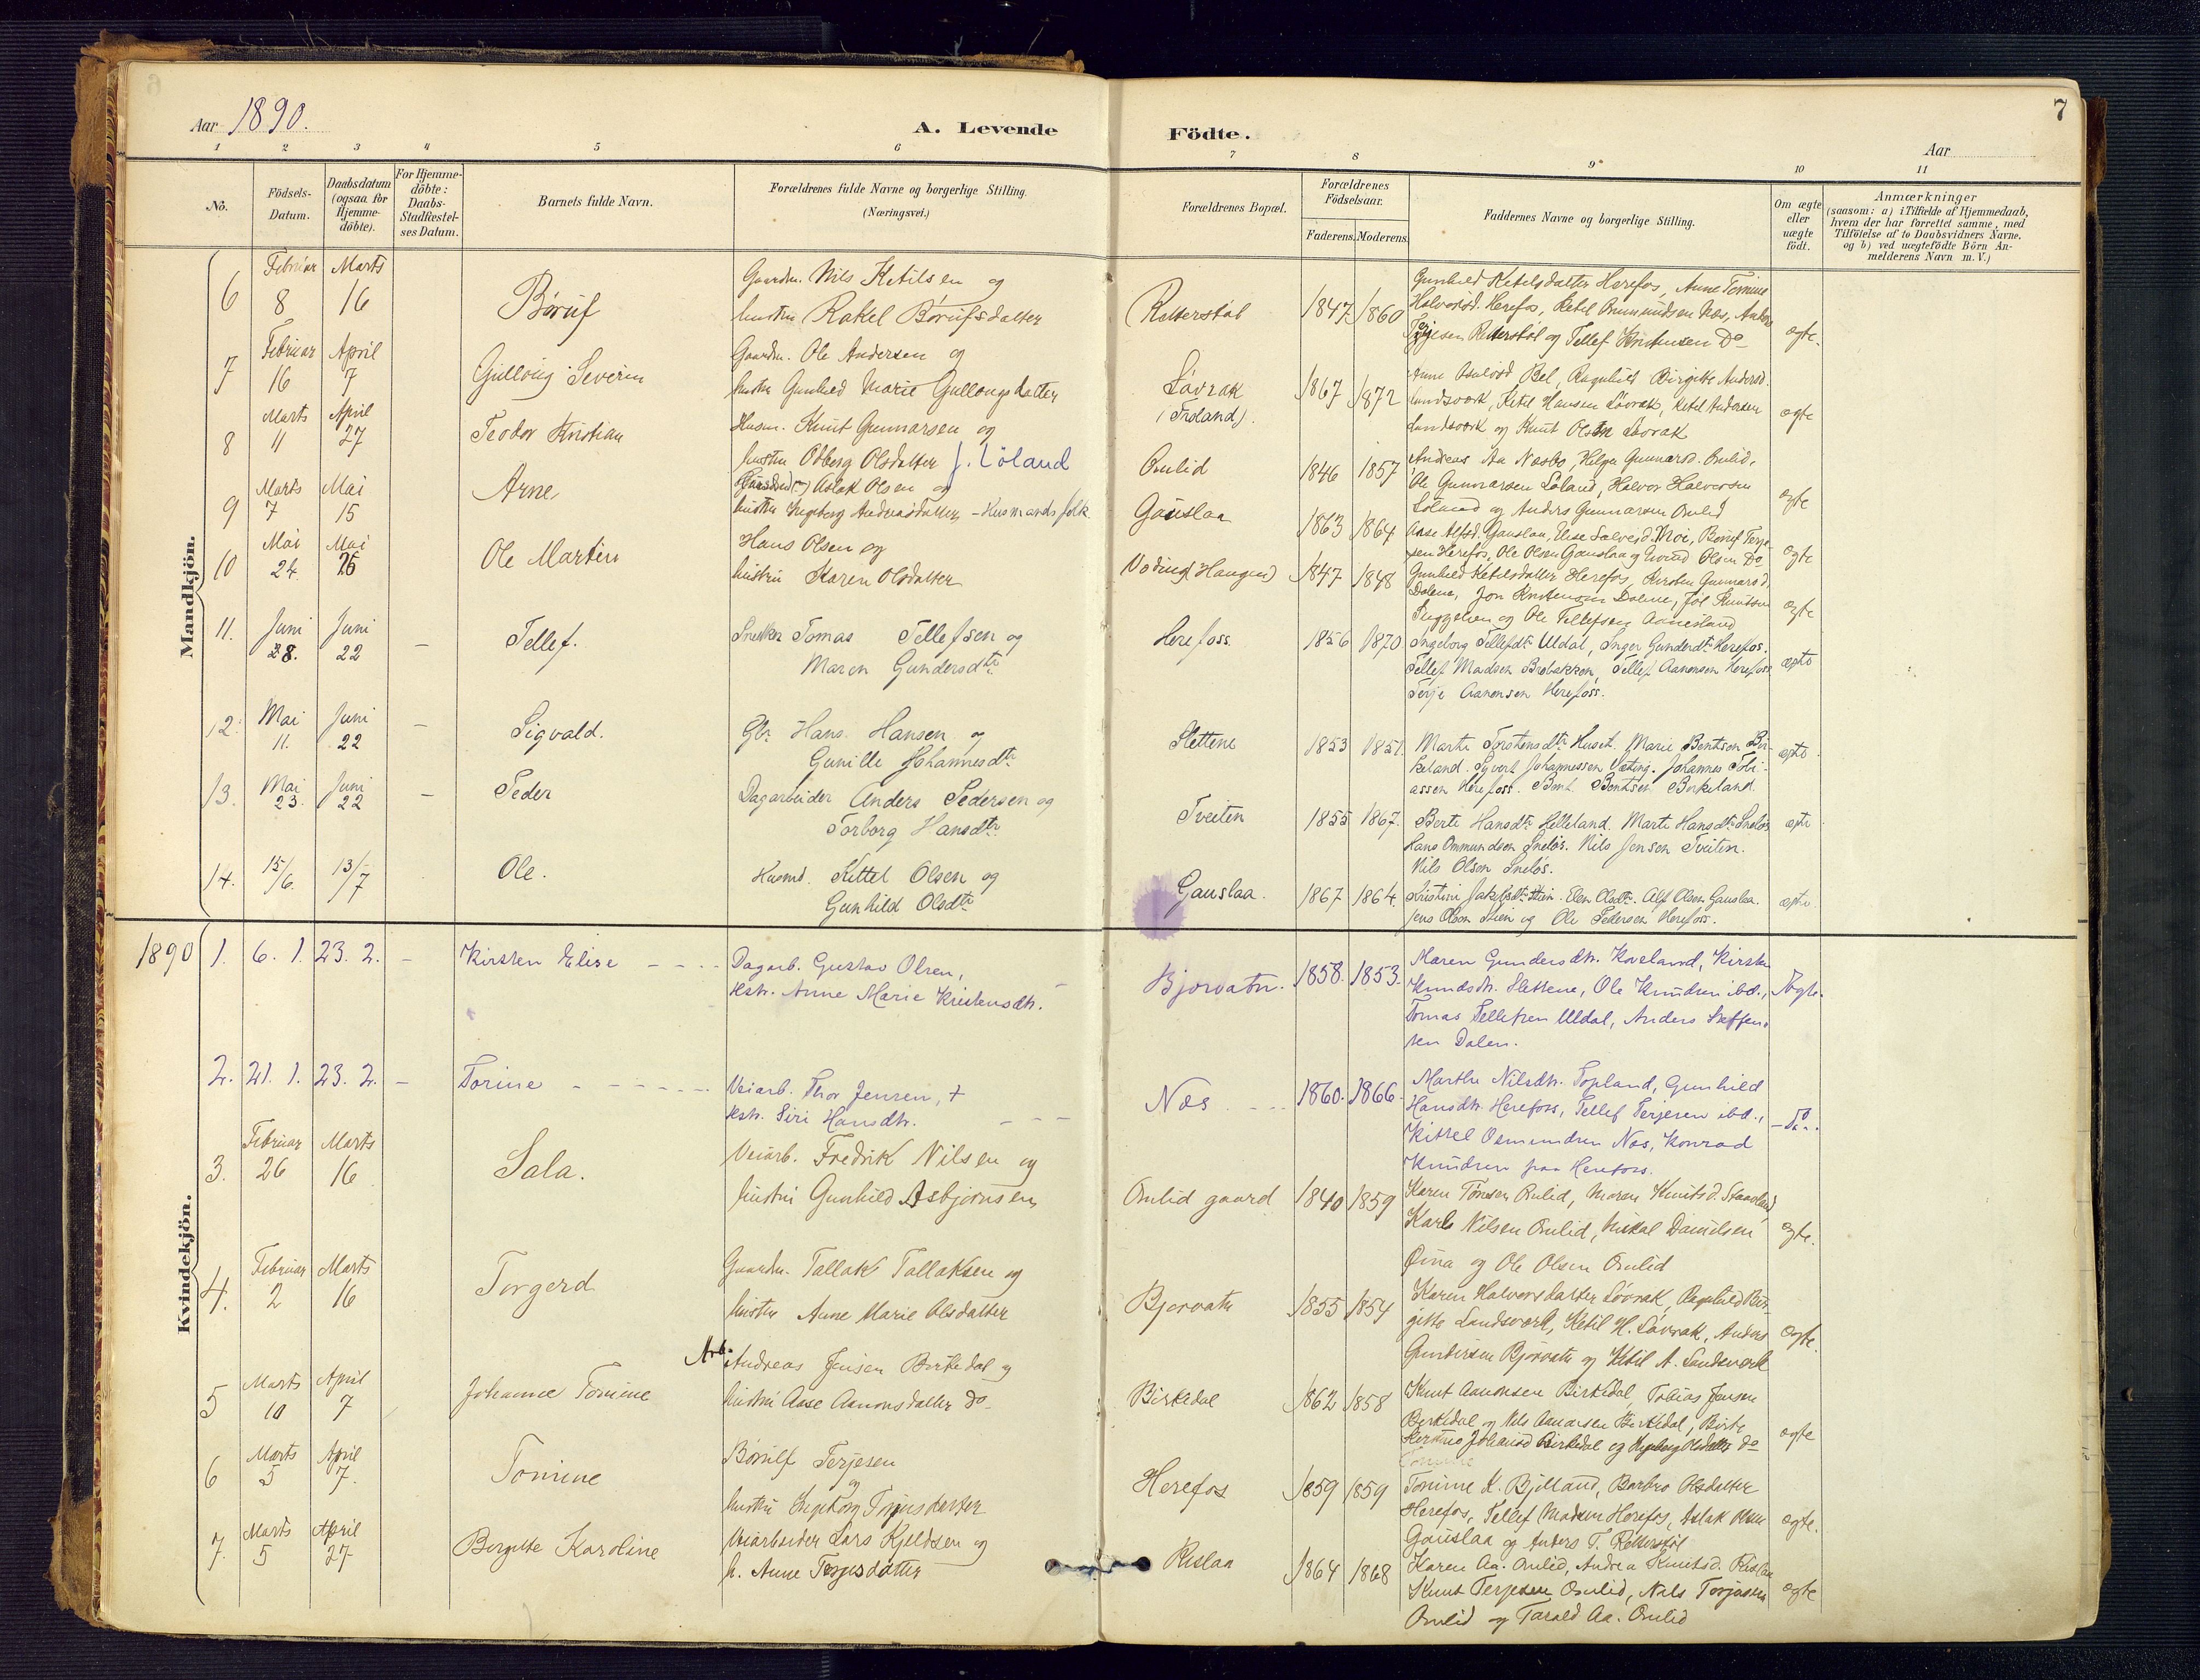 7
Aar 1890.
A. Levende Födte.
Aar
1 2 3 4 5 6 7 8 9 10 11
No.
Födsels-
Datum.
Daabsdatum
(ogsaa for
Hjemme-
döbte).
For Hjemme-
döbte:
Daabs-
Stadfæstel-
ses Datum.
Barnets fulde Navn.
Forældrenes fulde Navne og borgerlige Stilling.
(Næringsvei.)
Forældrenes Bopæl.
Forældrenes
Födselsaar.
Faderens. Moderens.
Faddernes Navne og borgerlige Stilling.
Om ægte
eller
uægte
födt.
Anmærkninger
(saasom: a) i Tilfælde af Hjemmedaab,
hvem der har forrettet samme, med
Tilföielse af to Daabsvidners Navne.
og b) ved uægtefödte Börn An-
melderens Navn m. V.)
Mandkjön.
6
Februar Marts
8 16
Børuf
Gaardm. Nils Ketilsen og
hustru Rakel Børufsdatter
Retterstøl
1847 1860
Gunhild Ketelsdatter Herefos, Anne Tomine
Halvorsd. Herefos, Ketel Omundsen Næs, Anders
Terjesen Retterstøl og Tellef Kristensen Do
ægte.
7
Februar April
16 7
Gullovig Severin
Gaardm. Ole Andersen og
hustru Gunhild Marie Gullovgsdatter
Løvrak
(Froland).
1867 1872
Anne Bel, Ragnhild Birgitte Andersd.
Landsverk, Ketil Hansen Løvrak, Ketil Andersen
Landsverk og Knut Olsen Løvrak
ægte
8
Marts April
11 27
Teodor Kristian
Husm. Knut Gunnarsen og
hustru Odberg Olsdatter f. Løland
Omlid
1846 1857
Andreas Aa Næsbø, Helga Gunnarsd. Omlid,
Ole Gunnarsen Løland, Halvor Halvorsen
Løland og Anders Gunnarsen Omlid
ægte
9
Marts Mai
7 15
Arne
Aslak Olsen og
hustru Ingeborg Andreasdatter - Husmandsfolk
Gauslaa
1863 1864
Aase Alfsd. Gauslaa, Else Salvesd. Moi, Børuf Terje-
sen Herefos, Ole Olsen Gauslaa og Olsen Do
ægte
10
Mai Mai
24 26
Ole Martin
Hans Olsen og
hustru Karen Olsdatter
(Haugen)
1847 1848
Gunhild Ketelsdatter Herefos, Kirsten Gunnarsd.
Dalene, Jon Kristensen Dalene, Joel Knutsen
og Ole Tellefsen Aanesland
ægte
11.
Juni Juni
28. 22
-
Tellef.
Snekker Tomas Tellefsen og
Maren Gundersdtr
Herefoss
1856 1870
Ingeborg Tellefsdtr Uldal, Inger Gundersdtr Herefos.
Tellef Madsen Brobakken, Tellef Aanonsen Herefoss
Terje Aanonsen Herefoss.
ægte
12.
Mai Juni
11. 22
-
Sigvald.
Gbr. Hans Hansen og
Gunille Johannesdtr
Slettene
1853 1851
Marte Torstensdtr Huset. Marie Bentsen Bir-
keland. Syvert Johannessen Væting. Johannes Tobi-
assen Herefoss. Bent Bentsen Birkeland
ægte
13.
Mai Juni
23. 22
-
Peder
Dagarbeider Anders Pedersen og
Torborg Hansdtr
Tveiten
1855 1867.
Berte Hansdtr Lilleland. Marte Hansdtr Sneløs
Hans Ommundsen Sneløs. Nils Jensen Tveiten.
Nils Olsen Sneløs.
ægte
14.
15/6. 13/7
Ole.
Husmd. Kittel Olsen og
Gunhild Olsdtr
Gauslaa.
1867 1864.
Kristine Stien. Elen Olsdtr. Alf Olsen Gauslaa.
Jens Olsen Stien og Ole Pedersen Herefoss.
ægte
Kvindekjön.
1890
1. 6. 1. 23. 2. -
Kirsten Elise
Dagarb. Gustav Olsen,
Hstr. Anne Marie Kristensdtr.
Bjorvatn.
1858. 1853.
Maren Gundersdtr. Koveland, Kirsten
Knudsdtr. Slettene, Ole Knudsen ibd.,
Tomas Tellefsen Uldal, Anders Steffen-
sen Dalen.
Ægte.
2. 21. 1. 23. 2. -
Torine
Veiarb. Thor Jensen, +
Hstr. Siri Hansdtr.
Næs
1860. 1866.
Marthe Nilsdtr. Topland, Gunhild
Hansdtr. Herefoss, Tellef Terjesen ibd.,
Kittel Osmundsen Næs, Konrad
Knudsen paa Herefoss.
- Do.
3.
Februar Marts
26 16
Sala.
Veiarb. Fredrik Nilsen og
hustru Gunhild Asbjørnsen
Omlid gaard
1840 1859
Karen Tønnesen Omlid, Maren Knutsd. Staaland,
Karl Nilsen Omlid, Mikal Danielsen
Øina og Ole Olsen Omlid
ægte.
4.
Februar Marts
2 16
Torgerd
Gaardm. Tallak Tallaksen og
hustru Anne Marie Olsdatter
Bjorvatn
1855 1854
Karen Halvorsdatter Løvrak, Ragnhild Bir-
gitte Landsverk, Ketil H. Løvrak, Anders
Gundersen Bjorvatn og Ketil A. Landsverk
ægte.
5
Marts April
10 7
Johanne Tomine
Arb. Andreas Jensen Birkedal og
hustru Aase Aanonsdatter Do
Birkedal
1862 1858
Knut Aanonsen Birkedal, Tobias Jensen
Birkedal og Nils Aanonsen Birkedal, Birte
Johansd Birkedal og Ingeborg Olsdatter Do
ægte
6
Marts April
5 7.
Tomine
Børulf Terjesen
og
hustru Ingeborg Terjesdatter
Herefos
1859 1859
Tomine K. Bjelland, Barbro Olsdatter
Herefos, Tellef Madsen Herefos, Aslak Olsen
Gauslaa og Anders T. Retterstøl
ægte.
7.
Marts April
5 27
Birgitte Karoline
Veiarbeider Lars Kjeldsen og
h. Anne Terjesdatter
Rislaa
1864 1868
Karen Aa. Omlid, Andrea Knutsd. Rislaa
Knut Terjesen Omlid, Nils Terjesen
Omlid og Tarald Aa. Omlid
ægte